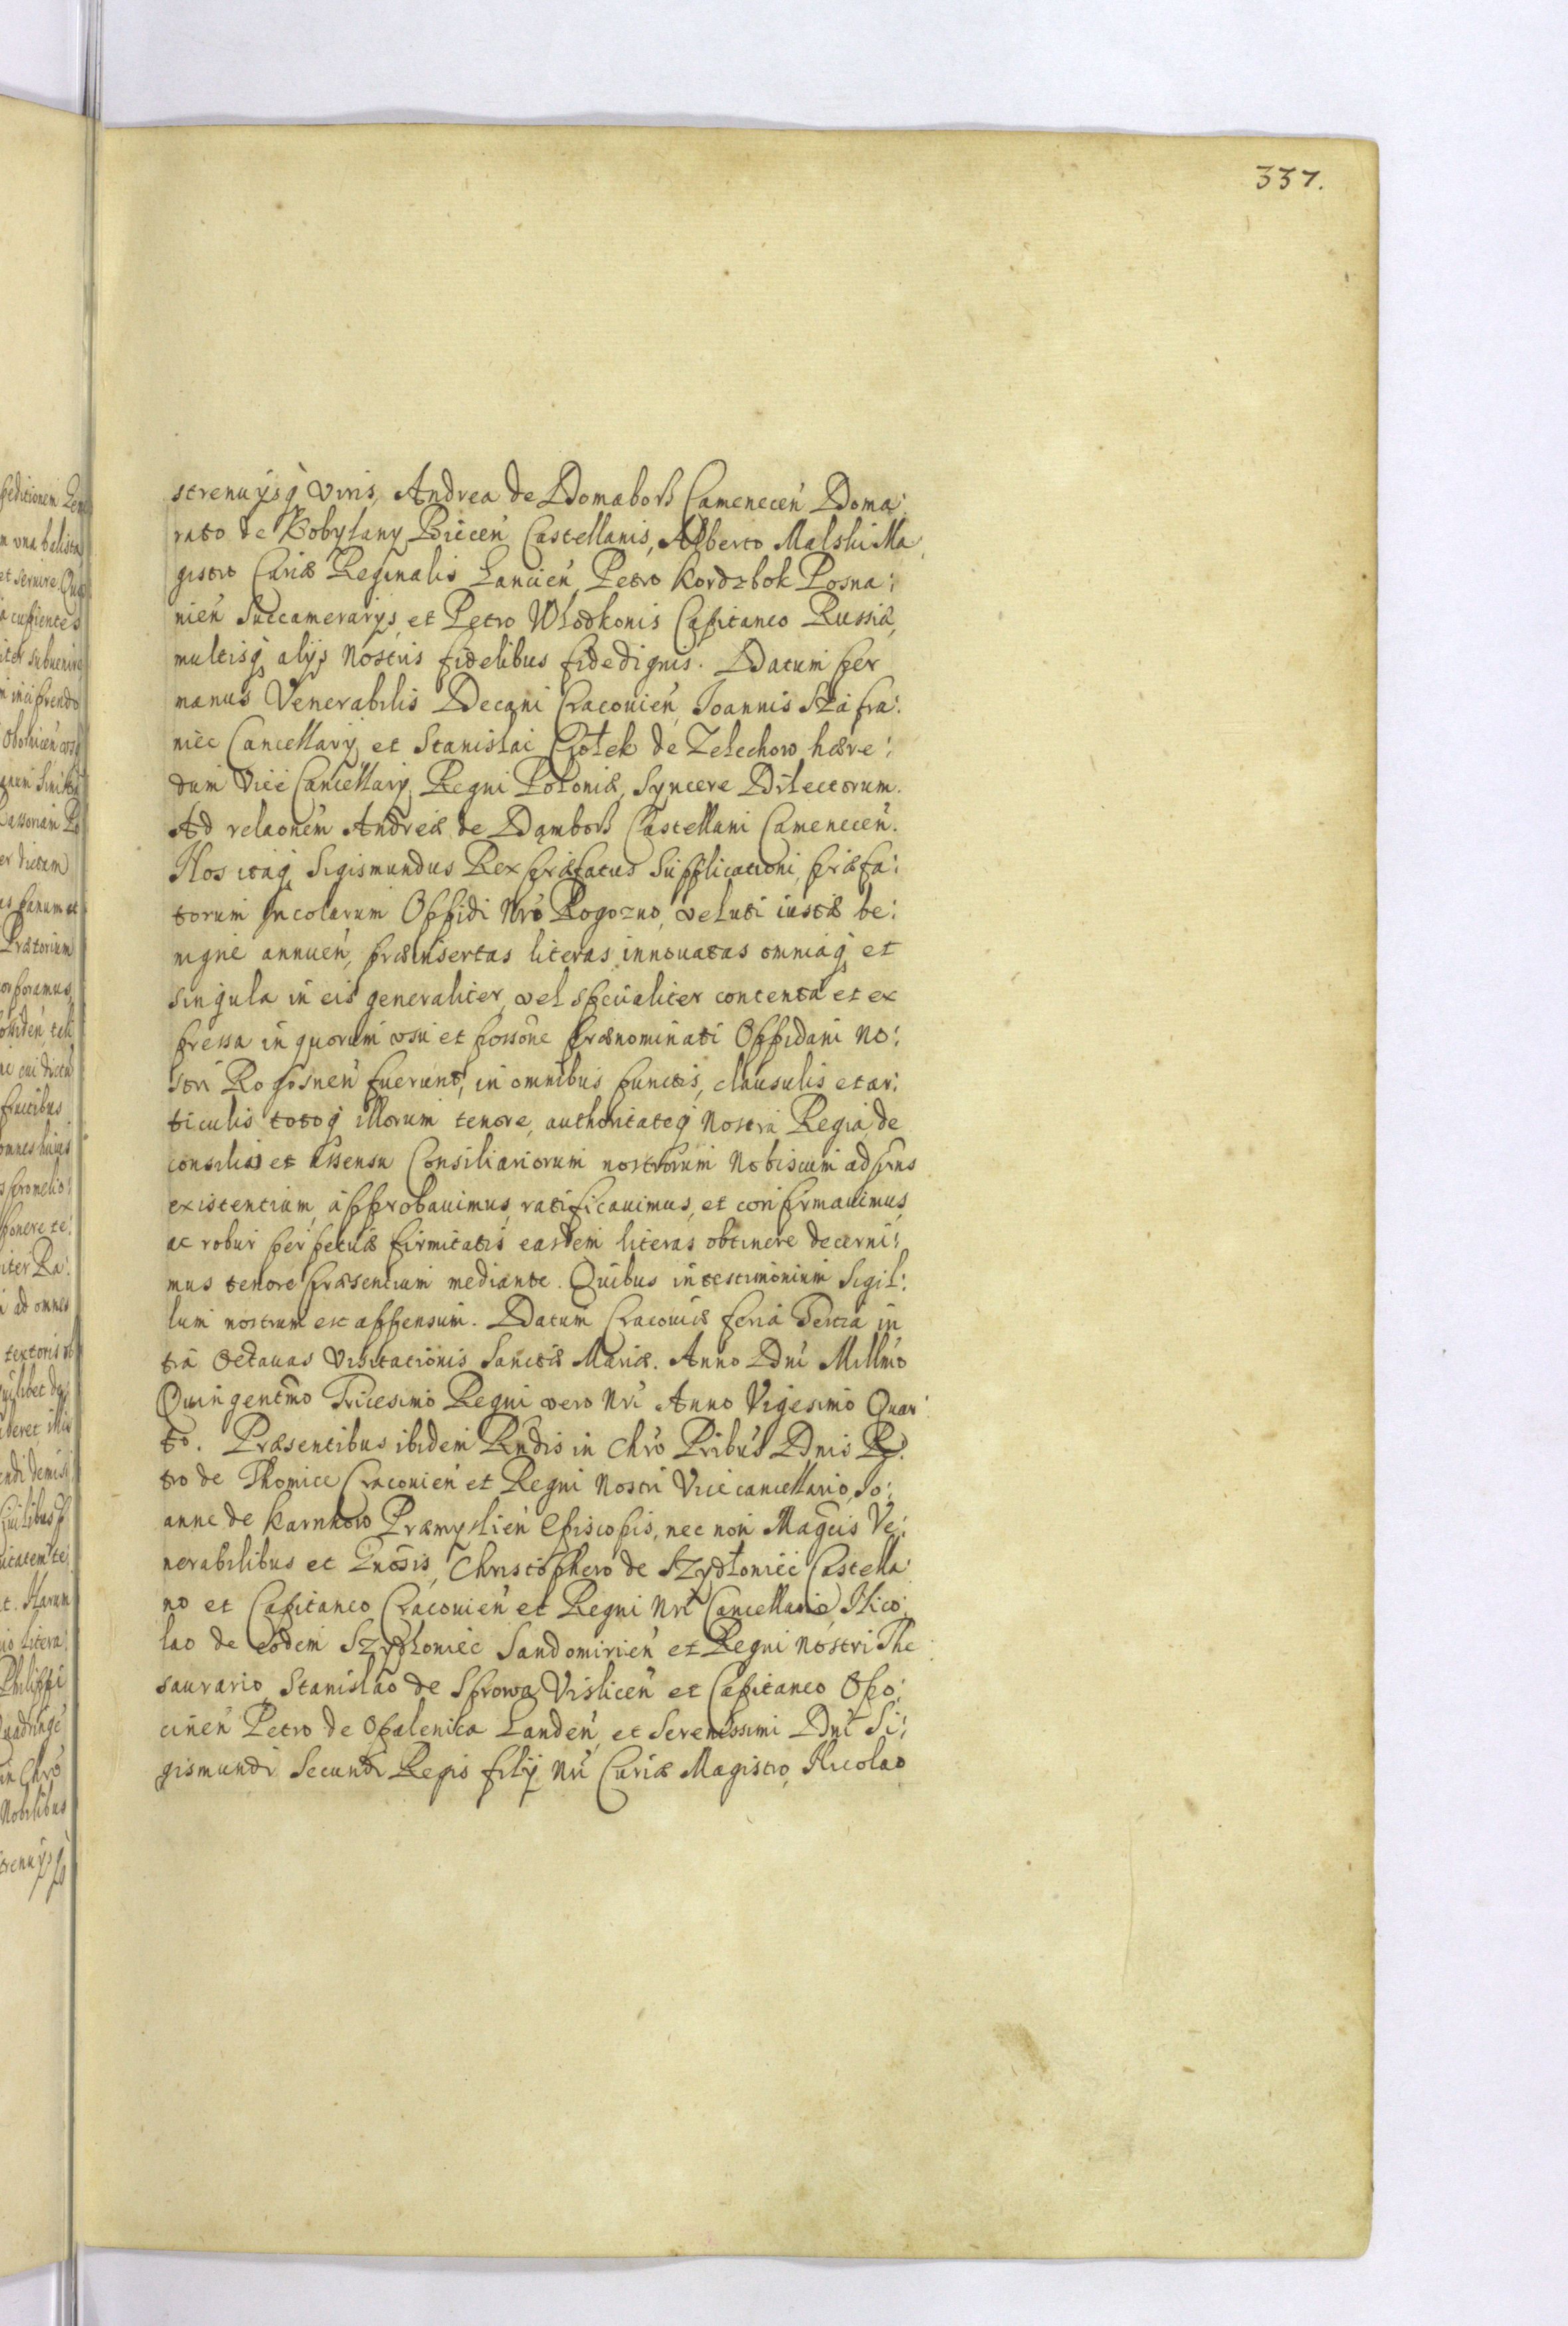 337.
strenuysq́ viris, Andrea de Domaborz Camenecen̄ Doma:
rato de Kobylany Biecen̄ Castellanis, Alberto Malski Ma
gistro Curiæ Reginalis Lancien̄, Petro Kordzbok Posna:
nien̄ Succamerarys, et Petro Wlodkonis Capitaneo Russiæ,
multisq́ alys nostris fidelibus fidedignis. Datum per
manus Venerabilis Decani Cracouien̄, Joannis Szafra:
niec Cancellary, et Stanislai Ciołek de Zelechow hære:
dum Vice Cancellary, Regni Poloniæ, Syncere Dilectorum.
Ad relaōnem Andreæ de Dąmborz Castellani Camenecen̄.
Nos itaq́ Sigismundus Rex præfatus Supplicationi, præfa:
torum Incolarum Oppidi Nr̄o Rogozno, veluti iustæ be:
nigne annuen̄, præinsertas literas innouatas omniaq́ et
singula in eis generaliter, vel specialiter contenta et ex
pressa in quorum vsu et possōne prænominati Oppidani No:
stri Rogosnen̄ fuerunt, in omnibus punctis, clausulis et ar:
ticulis totoq́ illorum tenore, authoritateq́ nostra Regia, de
consilio et assensu Consiliariorum nostrorum Nobiscum ad prns
existentium, approbauimus, ratificauimus, et confirmauimus,
ac robur perpetuæ firmitatis easdem literas obtinere decerni:
mus tenore præsentium mediante. Quibus in testimonium Sigil:
lum nostrum est appensum. Datum Cracouiæ feria Tertia in
tra Octauas Visitationis Sanctæ Mariæ. Anno Dnī Millmo
Quingentmo Tricesimo Regni vero Nri Anno Vigesimo Quar:
to. Præsentibus ibidem Rndis in Chr̄o Pribus Dnis Pe:
tro de Thomice Cracouien̄ et Regni Nostri Vice cancellario, Jo:
anne de Karnkow Præmyslien̄ Episcopis, nec non Magcis Ve:
nerabilibus et Gnosis, Christophero de Szydłoniec Castella:
no et Capitaneo Cracouien̄ et Regni Nri Cancellario, Nico:
lao de eodem Szydłoniec Sandomirien̄ et Regni nostri The:
saurario, Stanislao de Sprowa Vislicen̄ et Capitaneo Opo:
cinen̄ Petro de Opalenica Landen̄, et Serenissimi Dni Si:
gismundi Secundi Regis fily Nri Curiæ Magistro, Nicolao